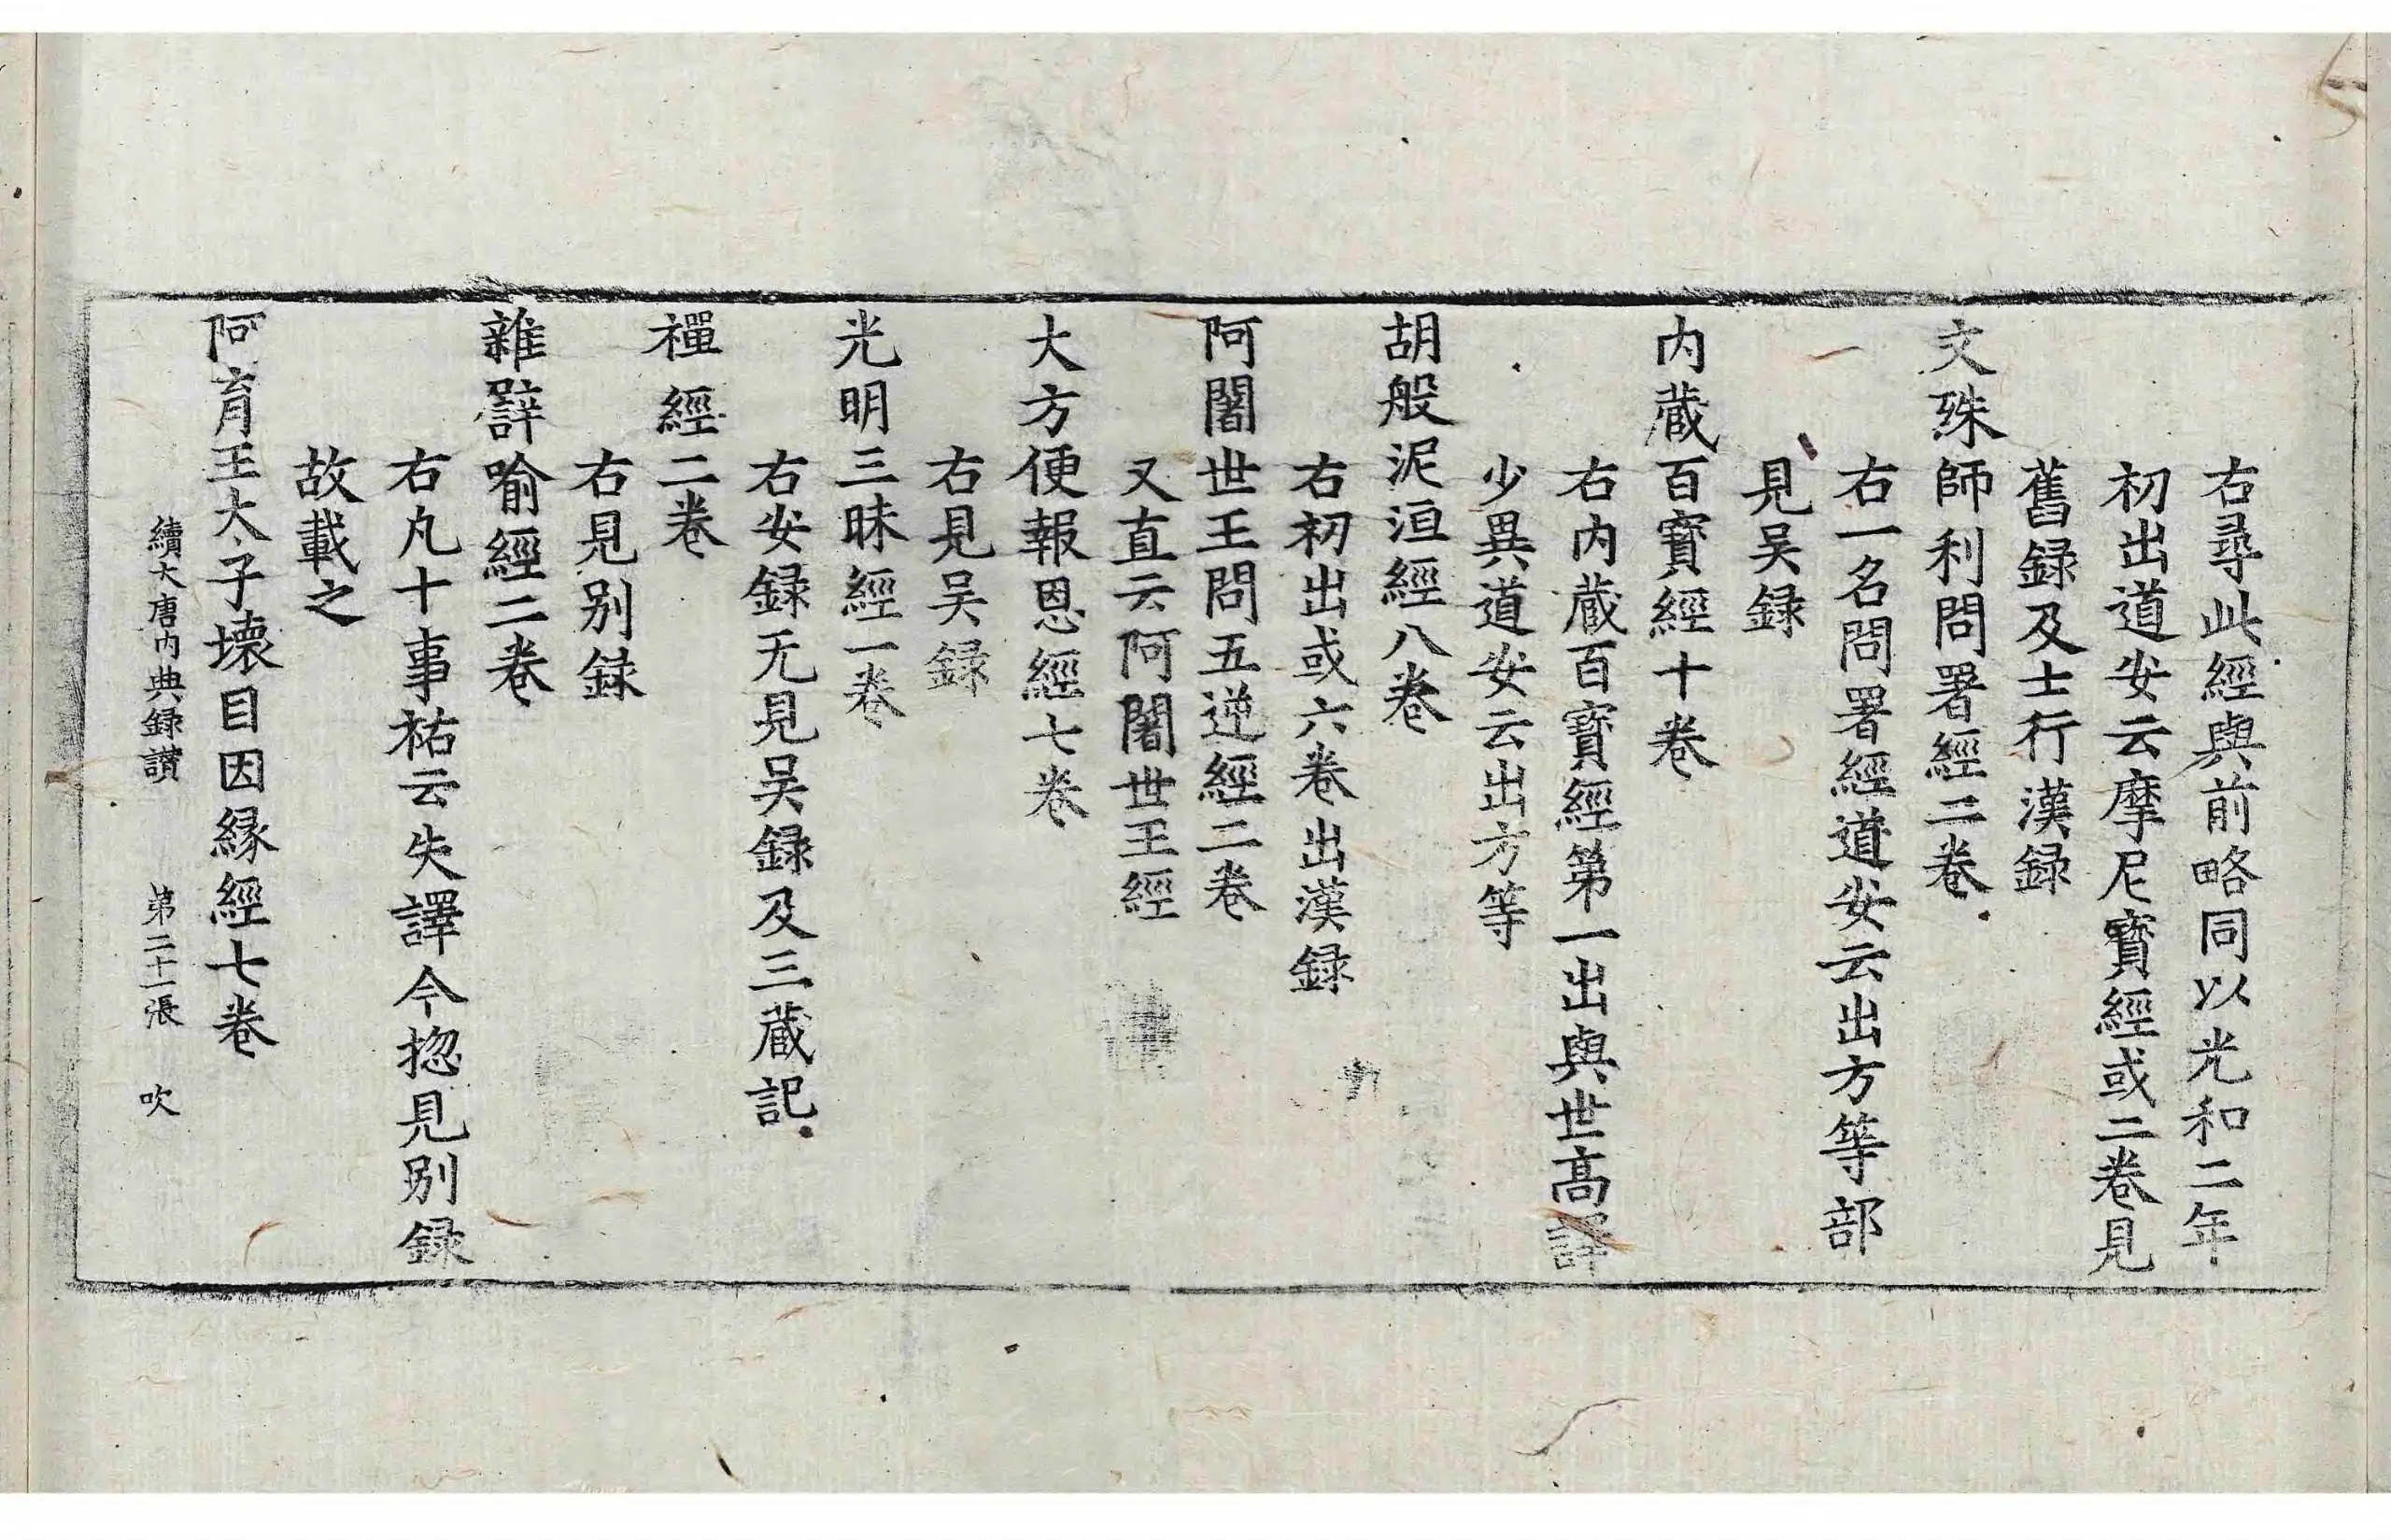 右尋此經與前略同以光和二年
初出道安云摩尼寳經或二卷見
舊録及士行漢録
文殊師利問署經二卷
右一名問署經道安云出方等部
見吴録
内蔵百寳經十卷
右内蔵百寳經第一出與世高譯
少異道安云出方等
胡般泥洹經八卷
右初出或六卷出漢録
阿闍世王問五逆經二卷
又直云阿闍世王經
大方便報恩經七卷
右見吴録
光明三昧經一卷
右安録无見吴録及三蔵記
禪經二卷
右見别録
雜譬喻經二卷
右凡十事祐云失譯今揔見别録
故載之
阿育王太子壊目因縁經七卷
續大唐内典録讃 第二十一張 吹